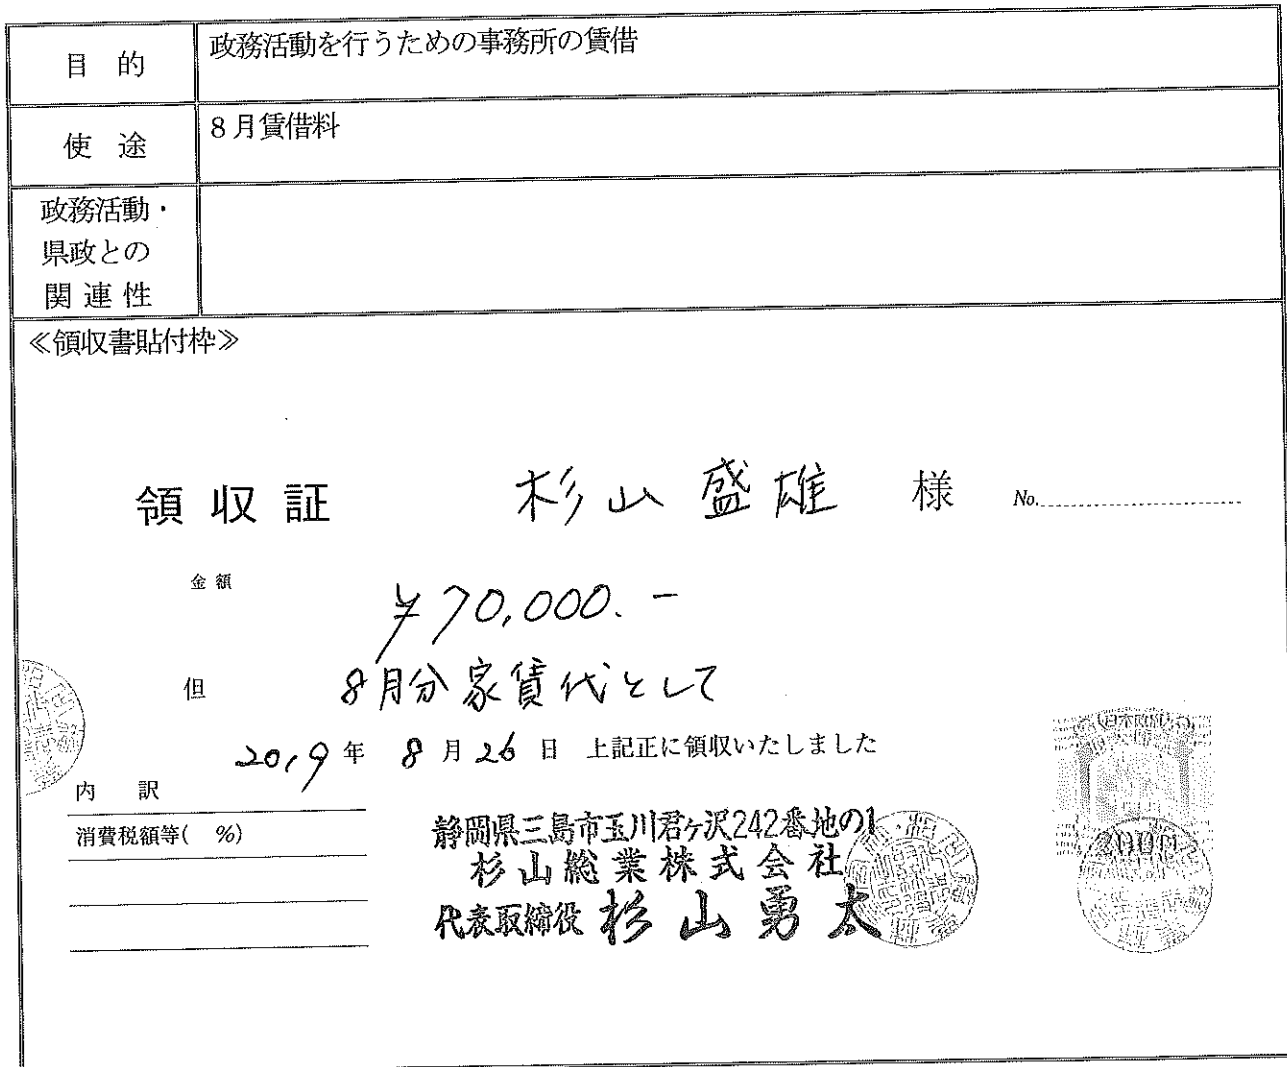 目 的
政務活動を行うための事務所の賃借
使 途
8月賃借料
政務活動・
県政との
関 連 性
≪領収書貼付枠≫
領 収 証 杉山 盛雄 様 No.
金 額
¥70,000.-
但 8月分家賃代として
2019年 8月26日 上記正に領収いたしました
内 訳
消費税額等( %)
静岡県三島市玉川君ヶ沢242番地の1
杉山総業株式会社
代表取締役 杉山勇太
200円